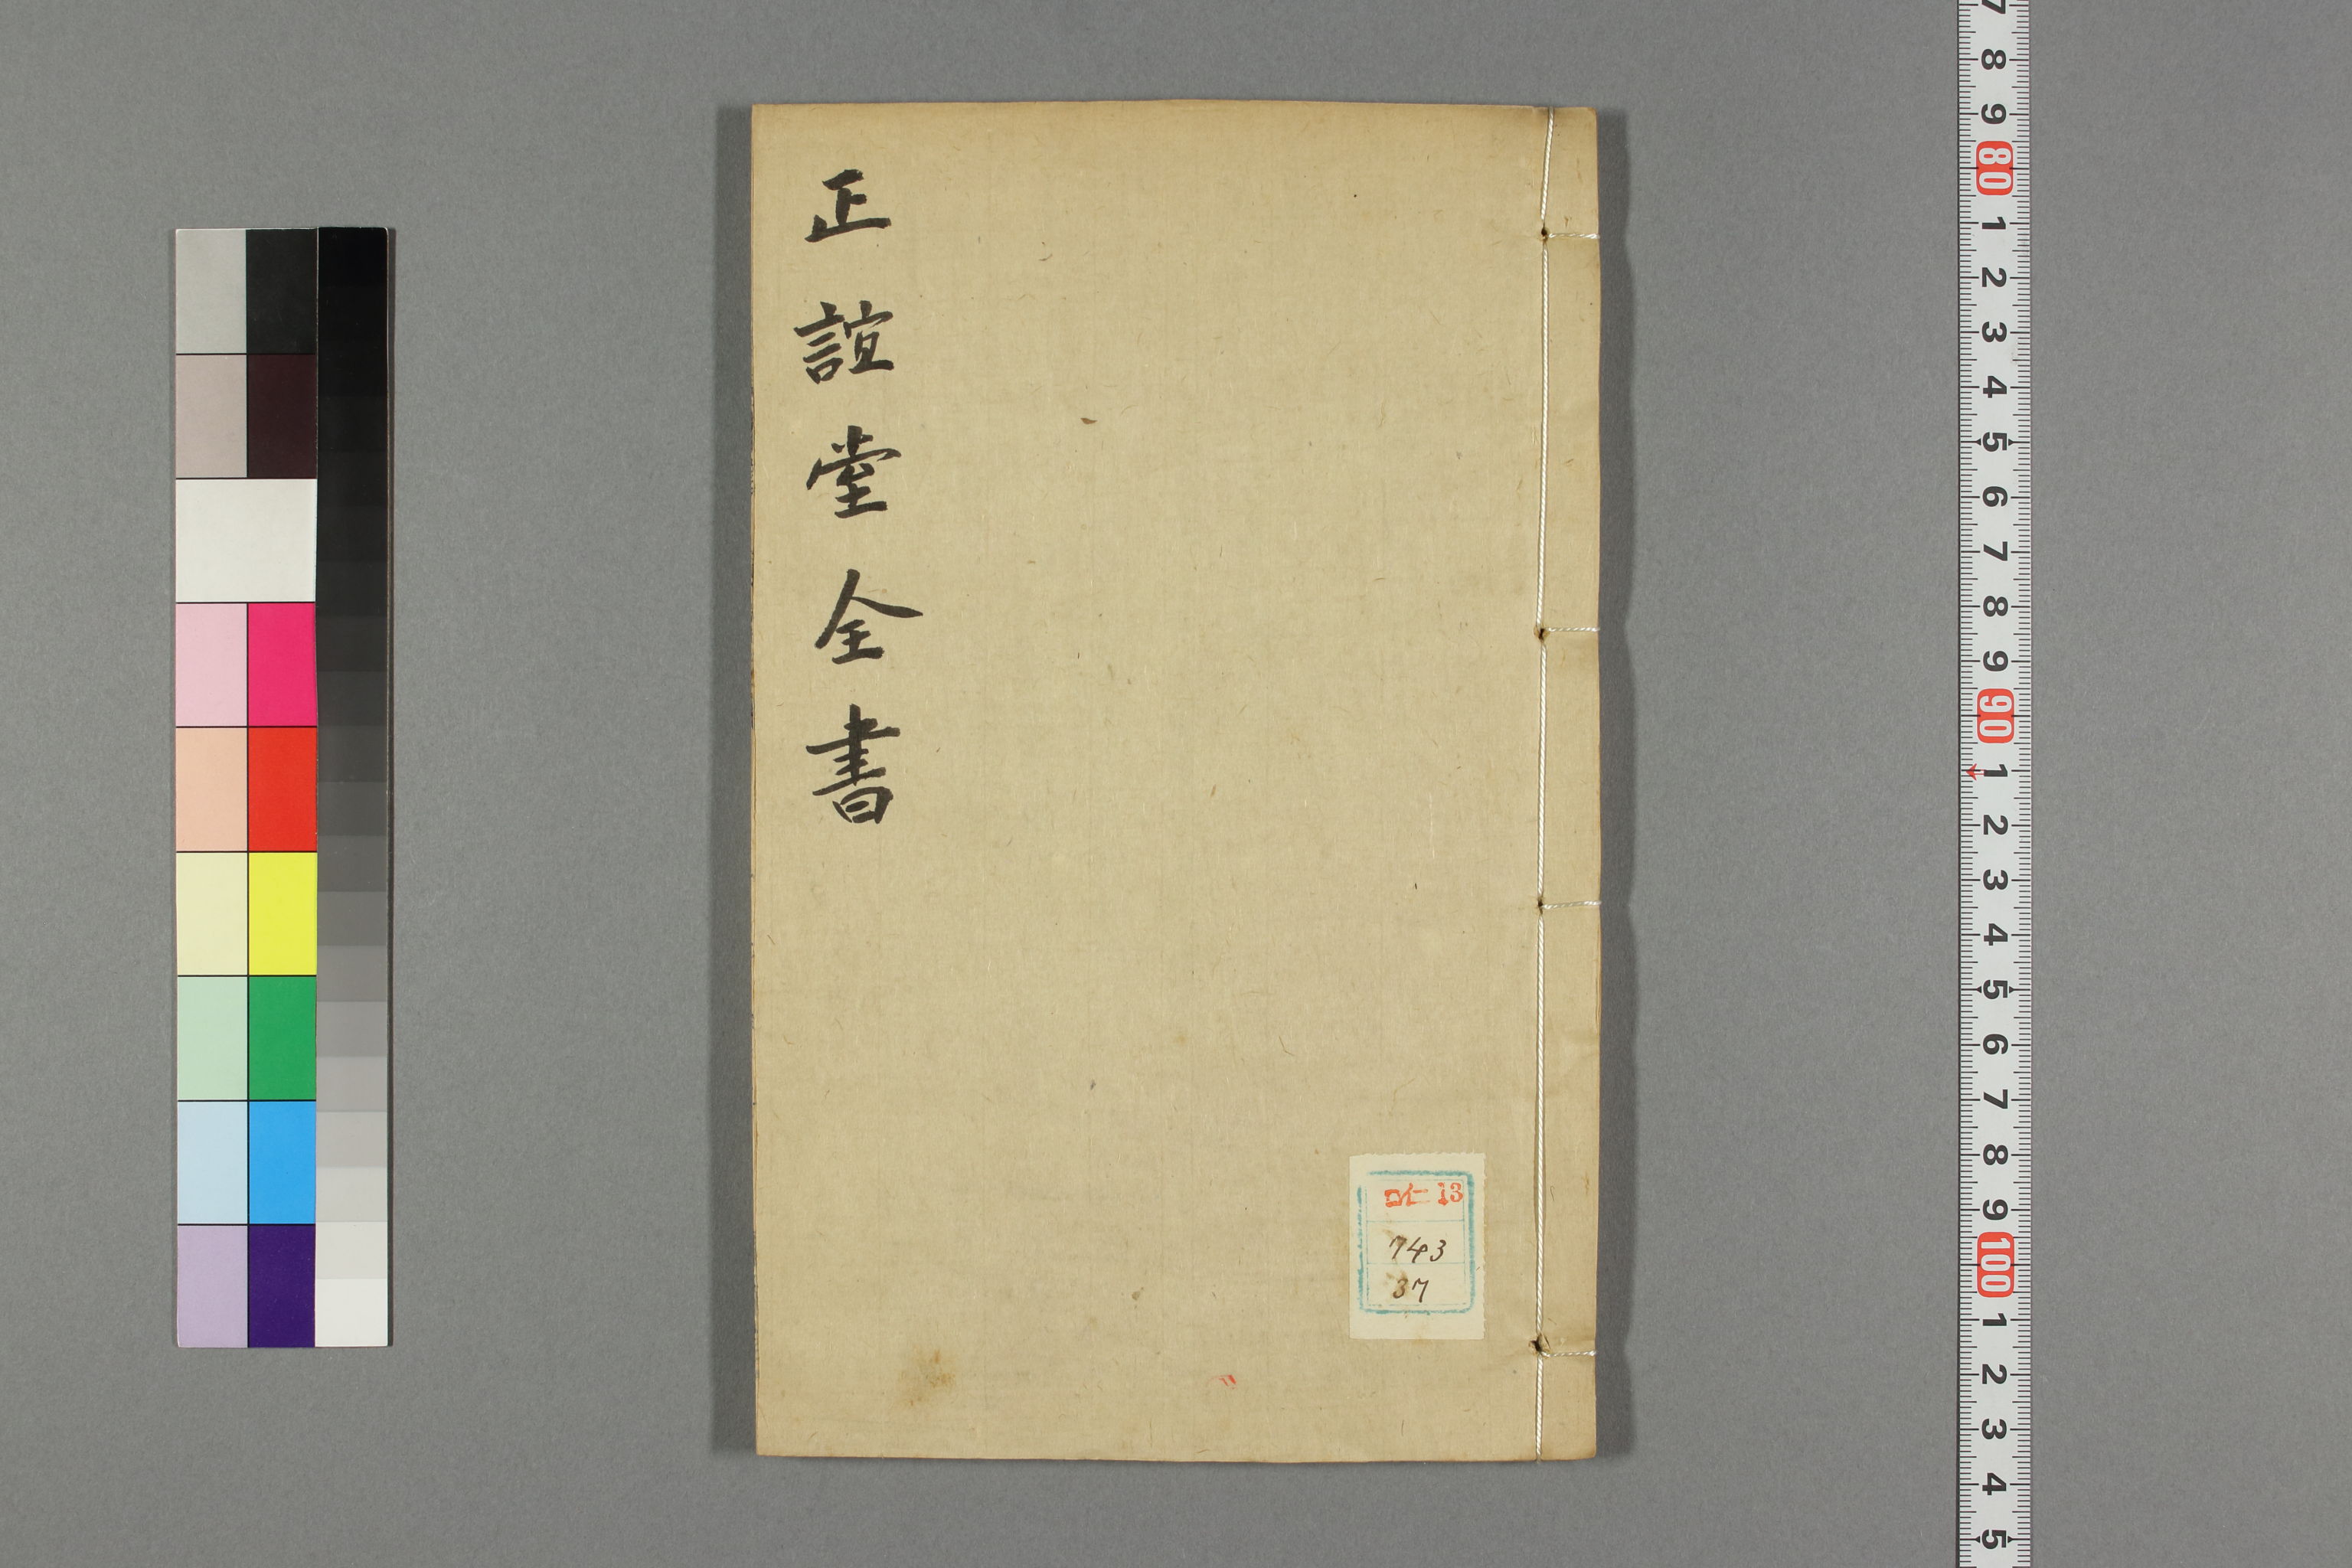 正誼堂全書
13
743
37
7
8
9
80
1
2
3
4
5
6
7
8
9
90
1
2
3
4
5
6
7
8
9
100
1
2
3
4
5